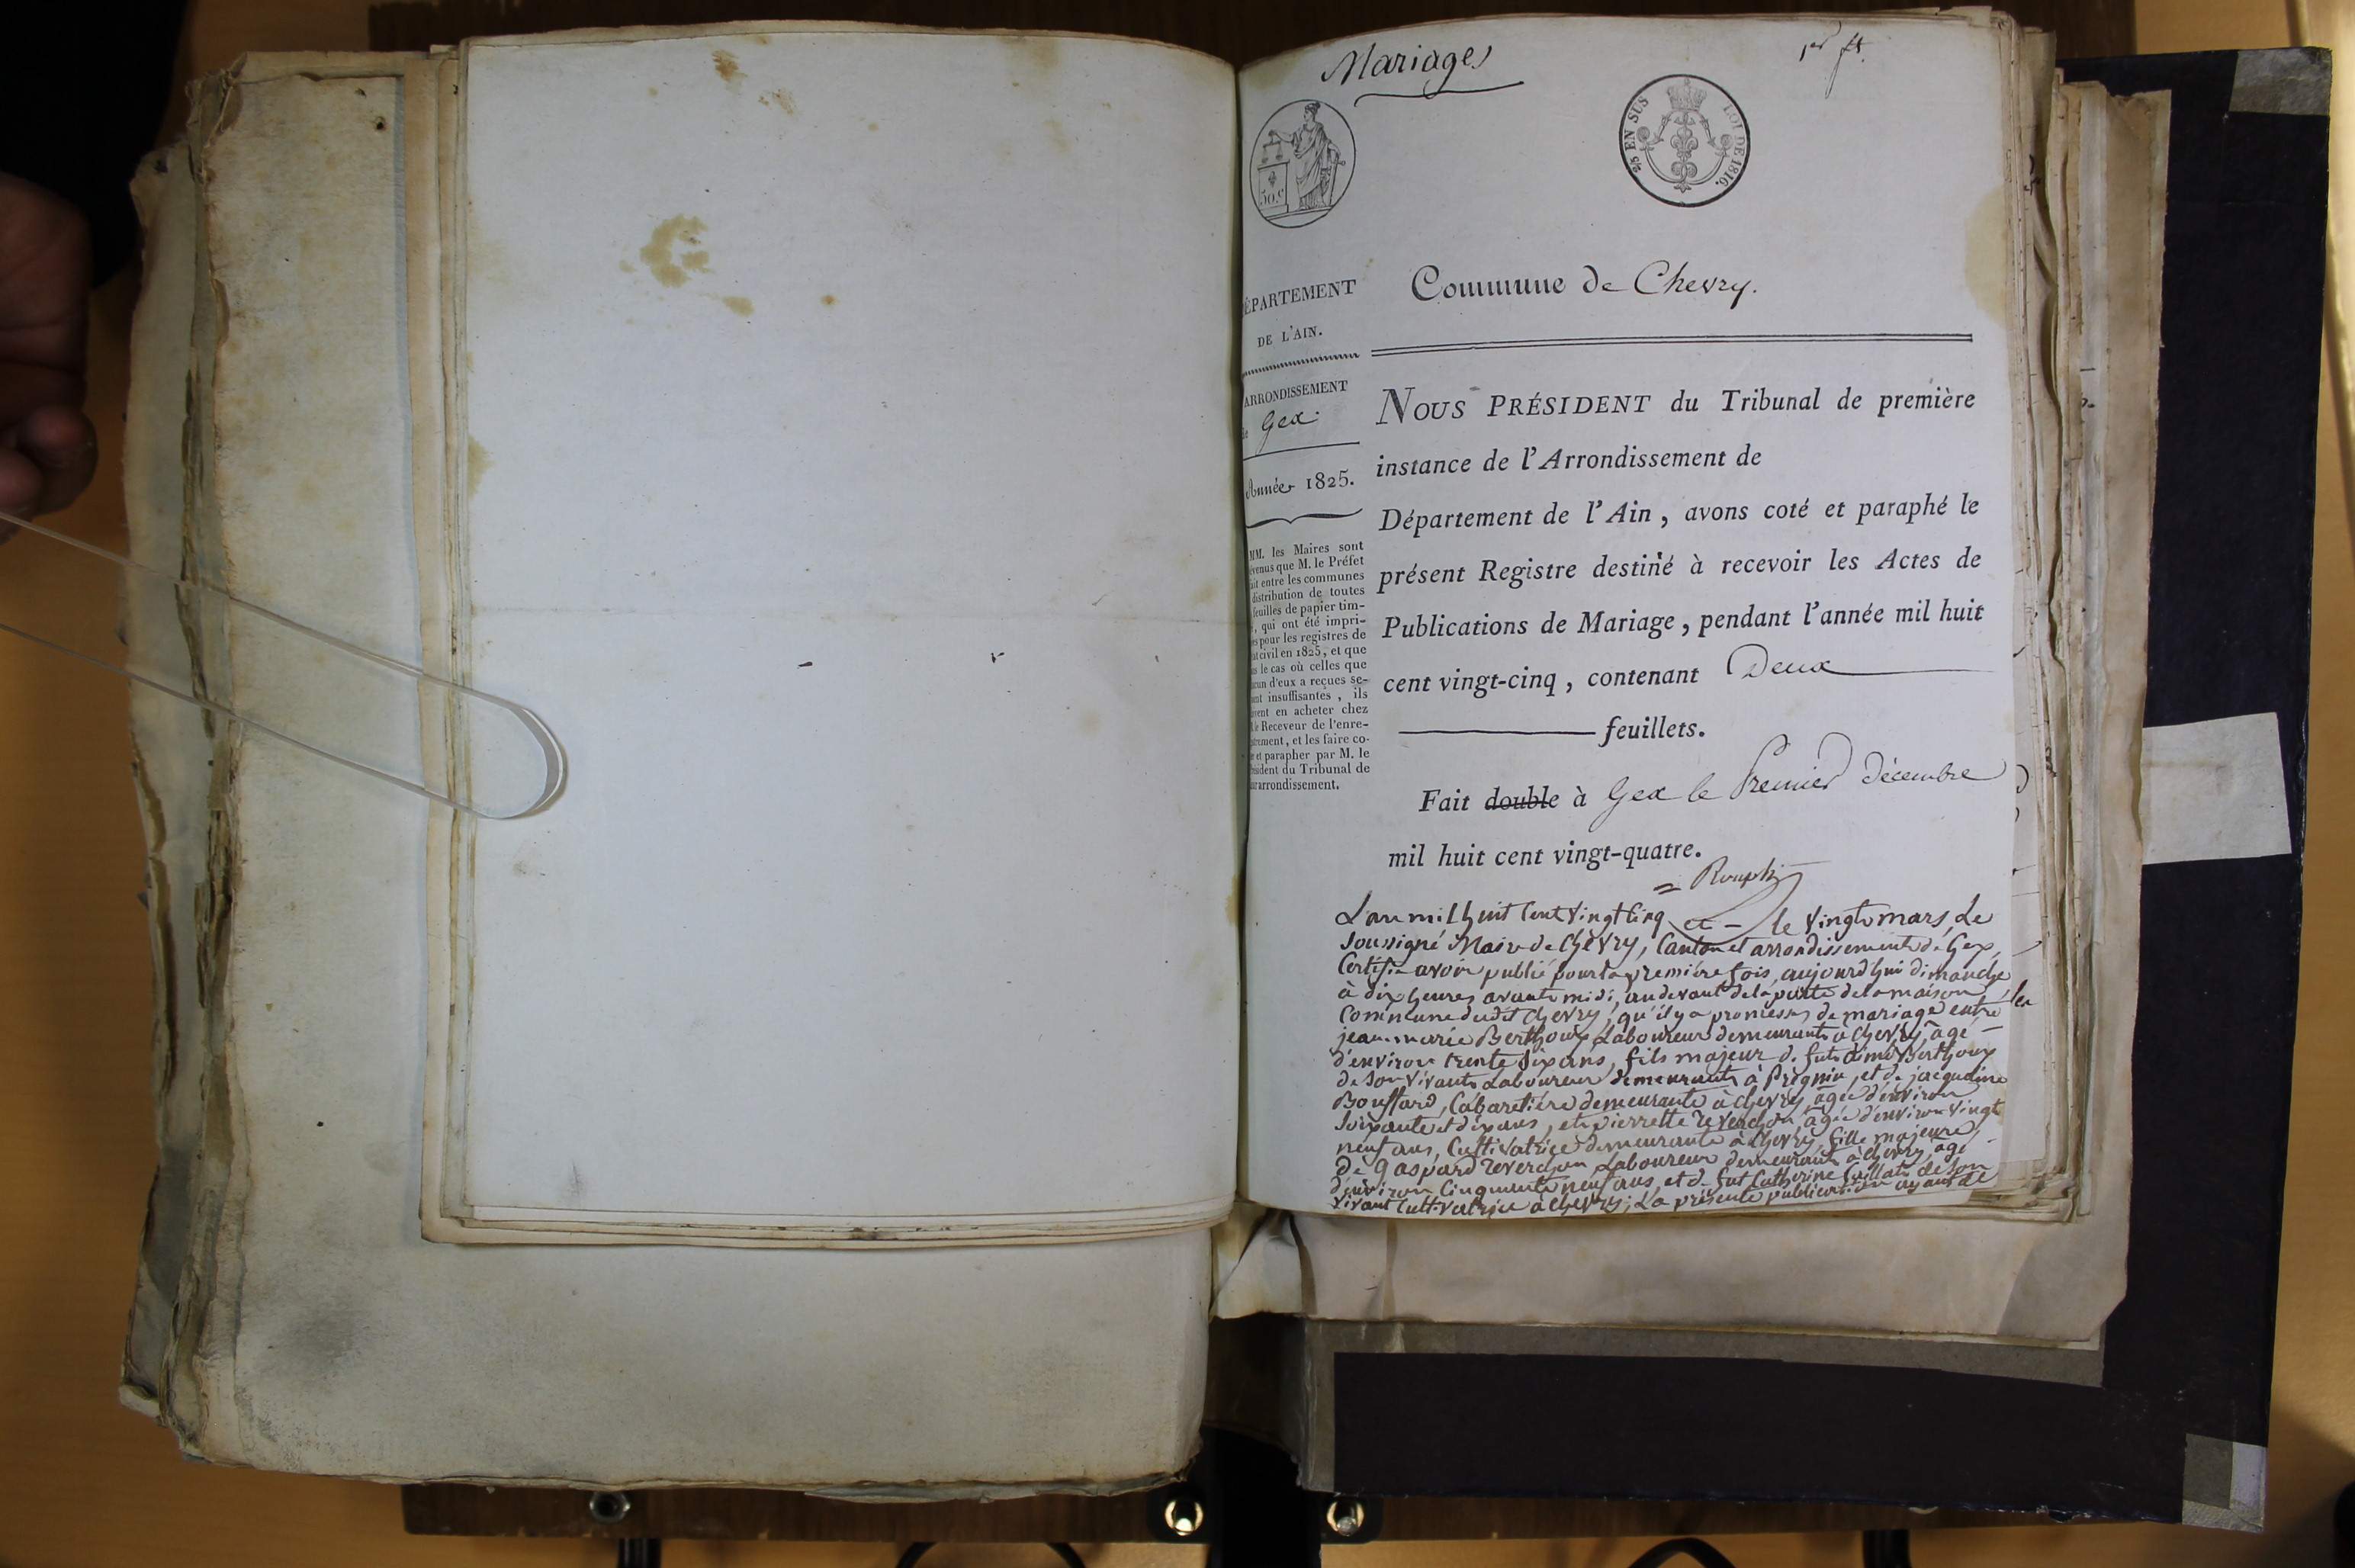 Mariages
1er ft.
2/5 EN SUS
LOI DE 1816.
50.c
Commune de Chevry.
ÉPARTEMENT
DE L'AIN.
ARRONDISSEMENT
de Gex.
Année 1825.
MM. les Maires sont
évenus que M. le Préfet
ait entre les communes
distribution de toutes
feuilles de papier tim-
, qui ont été impri-
es pour les registres de
at civil en 1825, et que
ns le cas où celles que
acun d'eux a reçues se-
ent insuffisantes, ils
ivent en acheter chez
le Receveur de l'enre-
strement, et les faire co-
r et parapher par M. le
résident du Tribunal de
ur arrondissement.
NOUS PRÉSIDENT du Tribunal de première
instance de l'Arrondissement de
Département de l'Ain, avons coté et paraphé le
présent Registre destiné à recevoir les Actes de
Publications de Mariage, pendant l'année mil huit
cent vingt-cinq, contenant Deux
feuillets.
Fait double à Gex le Premier décembre
mil huit cent vingt-quatre.
L'an mil huit Cent vingt Cinq et - le vingt mars, Le
Soussigné Maire de Chevry, Canton et arrondissement de Gex,
Certifie avoir publié pour la première fois, aujourd'hui dimanche
à dix heures avant midi, au devant de la porte de la maison
Commune dudit Chevry, qu'il y a promesses de mariage entre
jean marie Berthoux, Laboureur demeurant à Chevry, âgé
d'environ trente six ans, fils majeur de fut aimé Berthoux
de Son vivant Laboureur demeurant à Prégnin, et de jacqueline
Bouffard, Cabaretière demeurante à Chevry, âgée d'environ
Soixante et dix ans, et pierrette reverchon, âgée d'environ vingt
neuf ans, Cultivatrice demeurante à Chevry, fille majeure
de gaspard reverchon Laboureur demeurant à Chevry, âgé
d'environ Cinquante neuf ans, et de fut Catherine Caillat, de Son
vivant Cultivatrice à Chevry; La présente publication ayant de